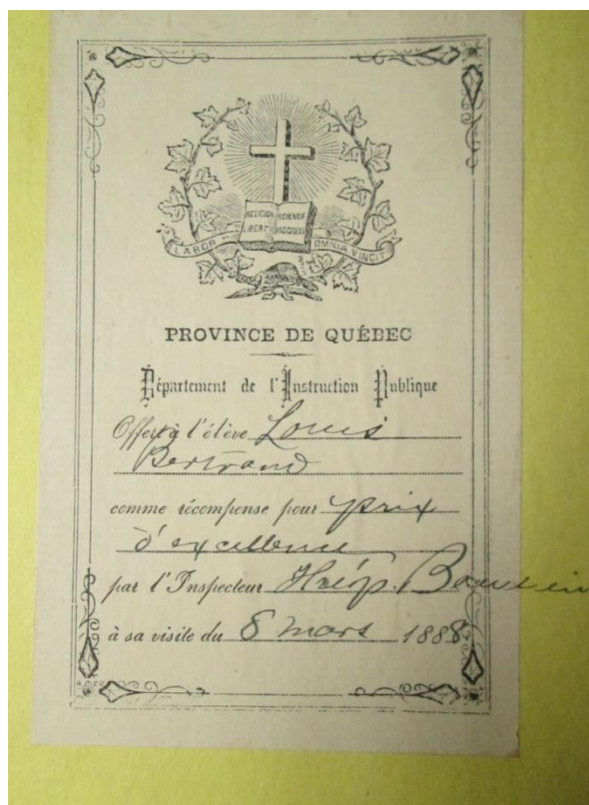 RELIGION SCIENCE
LIBERTÉ PROGRESS
LABOR OMNIA VINCIT
PROVINCE DE QUÉBEC
Département de l'Instruction Publique
Offert à l'élève Louis
Bertrand
comme récompense pour prix
d'excellence
par l'Inspecteur
à sa visite du 8 mars 1888